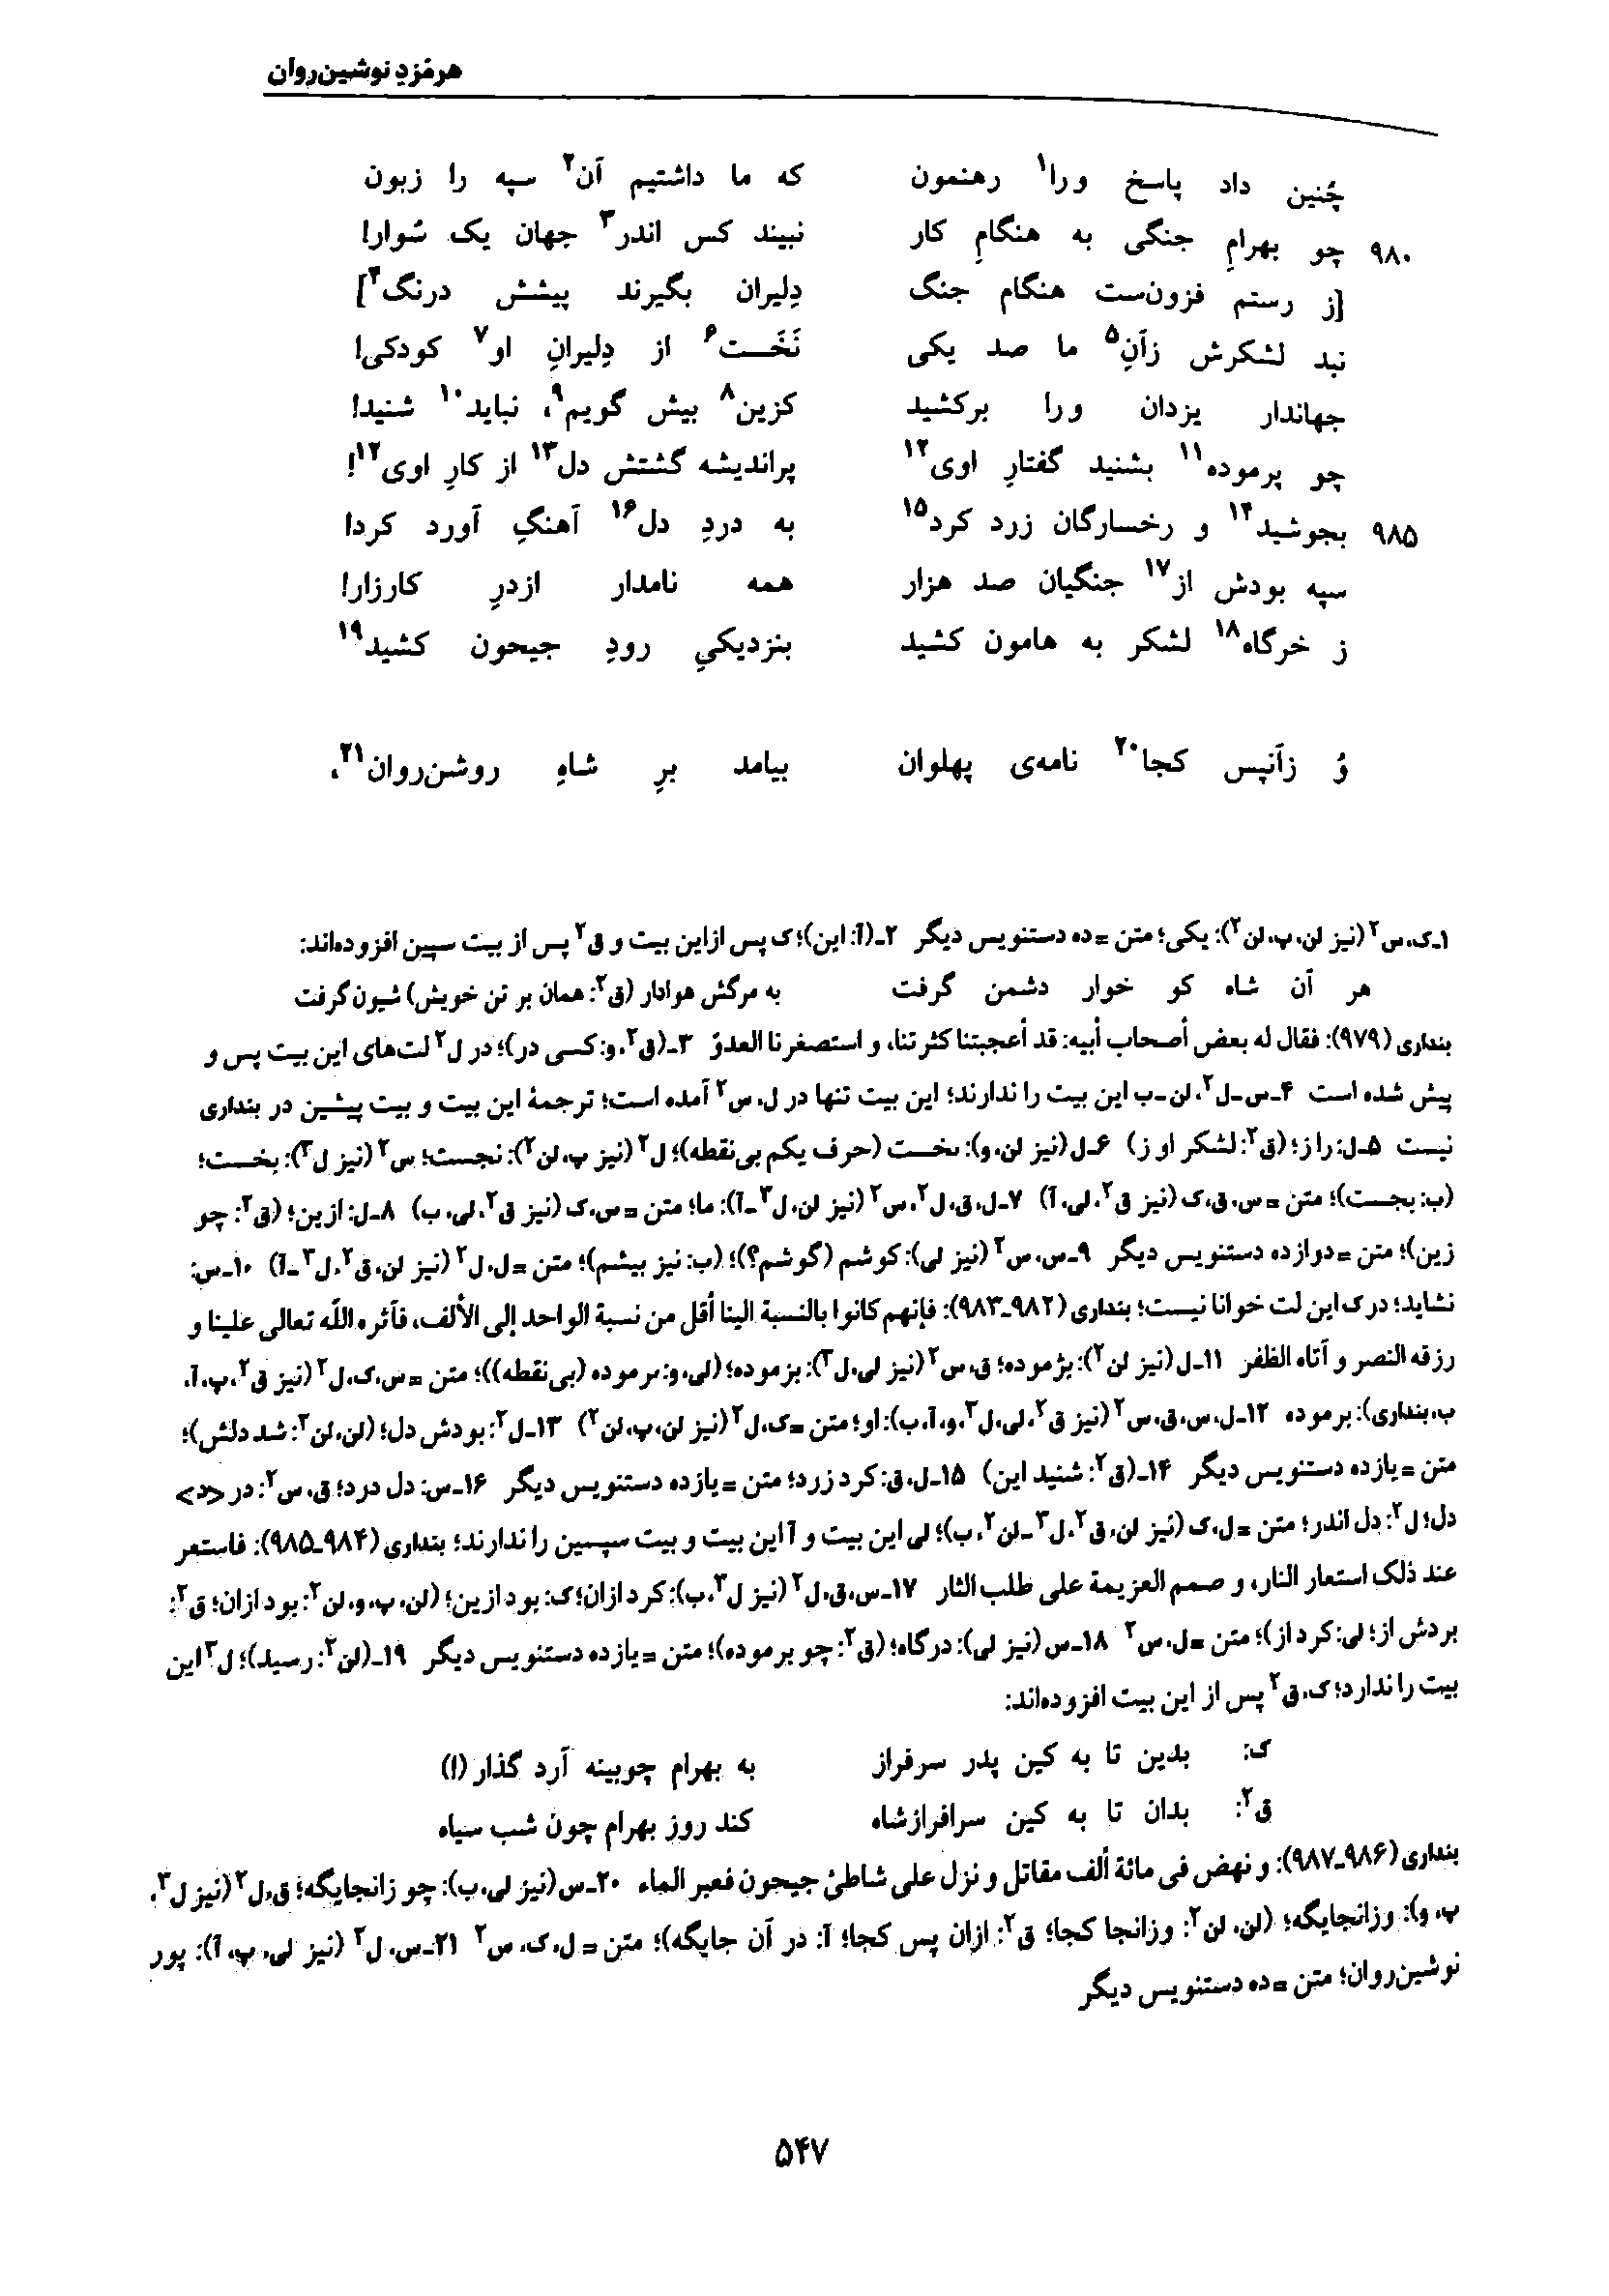 هرمَزدِ نوشین‌روان
چُنین داد پاسخ ورا۱ رهنمون که ما داشتیم آن۲ سپه را زبون
۹۸۰ چو بهرامِ جنگی به هنگامِ کار نبیند کس اندر۳ جهان یک سُوار!
[ز رستم فزون‌ست هنگام جنگ دِلیران بگیرند پیشش درنگ۴]
نبد لشکرش زآنِ۵ ما صد یکی نَخَست۶ از دِلیرانِ او۷ کودکی!
جهاندار یزدان ورا برکشید کزین۸ بیش گویم۹، نباید۱۰ شنید!
چو پرموده۱۱ بشنید گفتارِ اوی۱۲ پراندیشه گشتش دل۱۳ از کارِ اوی۱۲!
۹۸۵ بجوشید۱۴ و رخسارگان زرد کرد۱۵ به دردِ دل۱۶ آهنگِ آورد کرد!
سپه بودش از۱۷ جنگیان صد هزار همه نامدار ازدرِ کارزار!
ز خرگاه۱۸ لشکر به هامون کشید بنزدیکیِ رودِ جیحون کشید۱۹
وُ زآنپس کجا۲۰ نامه‌ی پهلوان بیامد برِ شاهِ روشن‌روان۲۱،
۱ـ ک، س۲ (نیز لن، پ، لن۲): یکی؛ متن = ده دستنویس دیگر ۲ـ (آ: این)؛ ک پس ازاین بیت و ق۲ پس از بیت سپین افزوده‌اند:
هر آن شاه کو خوار دشمن گرفت به مرگش هوادار (ق۲: همان بر تن خویش) شیون گرفت
بنداری (۹۷۹): فقال له بعض أصحاب أبیه: قد أعجبتنا کثرتنا، و استصغرنا العدوّ ۳ـ (ق۲، و: کسی در)؛ در ل۲ لت‌های این بیت پس و
پیش شده است ۴ـ س ـ ل۲، لن ـ ب این بیت را ندارند؛ این بیت تنها در ل، س۲ آمده است؛ ترجمهٔ این بیت و بیت پیشین در بنداری
نیست ۵ـ ل: راز؛ (ق۲: لشکر او ز) ۶ـ ل (نیز لن، و): ىخست (حرف یکم بی‌نقطه)؛ ل۲ (نیز پ، لن۲): نجست؛ س۲ (نیز ل۳): بخست؛
(ب: بجست)؛ متن = س، ق، ک (نیز ق۲، لی، آ) ۷ـ ل، ق، ل۲، س۲ (نیز لن، ل۳ ـ آ): ما؛ متن = س، ک (نیز ق۲، لی، ب) ۸ـ ل: ازین؛ (ق۲: چو
زین)؛ متن = دوازده دستنویس دیگر ۹ـ س، س۲ (نیز لی): کوشم (گوشم؟)؛ (ب: نیز بیشم)؛ متن = ل، ل۲ (نیز لن، ق۲، ل۳ ـ آ) ۱۰ـ س:
نشاید؛ در ک این لت خوانا نیست؛ بنداری (۹۸۲ـ۹۸۳): فإنهم کانوا بالنسبة الینا أقل من نسبة الواحد إلی الألف، فآثره اللّه تعالی علینا و
رزقه النصر و آتاه الظفر ۱۱ـ ل (نیز لن۲): پژموده؛ ق، س۲ (نیز لی، ل۳): بزموده؛ (لی، و: ىرموده (بی‌نقطه))؛ متن = س، ک، ل۲ (نیز ق۲، پ، آ،
ب، بنداری): برموده ۱۲ـ ل، س، ق، س۲ (نیز ق۲، لی، ل۳، و، آ، ب): او؛ متن = ک، ل۲ (نیز لن، پ، لن۲) ۱۳ـ ل۲: بودش دل؛ (لن، لن۲: شد دلش)؛
متن = یازده دستنویس دیگر ۱۴ـ (ق۲: شنید این) ۱۵ـ ل، ق: کرد زرد؛ متن = یازده دستنویس دیگر ۱۶ـ س: دل درد؛ ق، س۲: در <د>
دل؛ ل۲: دل اندر؛ متن = ل، ک (نیز لن، ق۲، ل۳ ـ لن۲، ب)؛ لی این بیت و آ این بیت و بیت سپسین را ندارند؛ بنداری (۹۸۴ـ۹۸۵): فاستعر
عند ذلک استعار النار، و صمم العزیمة علی طلب الثار ۱۷ـ س، ق، ل۲ (نیز ل۳، ب): کرد ازان؛ ک: بود ازین؛ (لن، پ، و، لن۲: بود ازان؛ ق۲:
بردش از؛ لی: کرد از)؛ متن = ل، س۲ ۱۸ـ س (نیز لی): درگاه؛ (ق۲: چو برموده)؛ متن = یازده دستنویس دیگر ۱۹ـ (لن۲: رسید)؛ ل۳ این
بیت را ندارد؛ ک، ق۲ پس از این بیت افزوده‌اند:
ک: بدین تا به کین پدر سرفراز به بهرام چوبینه آرد گذار (!)
ق۲: بدان تا به کین سرافرازشاه کند روز بهرام چون شب سیاه
بنداری (۹۸۶ـ۹۸۷): و نهض فی مائة ألف مقاتل و نزل علی شاطئ جیحون فعبر الماء ۲۰ـ س (نیز لی، ب): چو زانجایگه؛ ق، ل۲ (نیز ل۳،
پ، و): وزانجایگه؛ (لن، لن۲: وزانجا کجا؛ ق۲: ازان پس کجا؛ آ: در آن جایگه)؛ متن = ل، ک، س۲ ۲۱ـ س، ل۲ (نیز لی، پ، آ): پور
نوشین‌روان؛ متن = ده دستنویس دیگر
۵۴۷